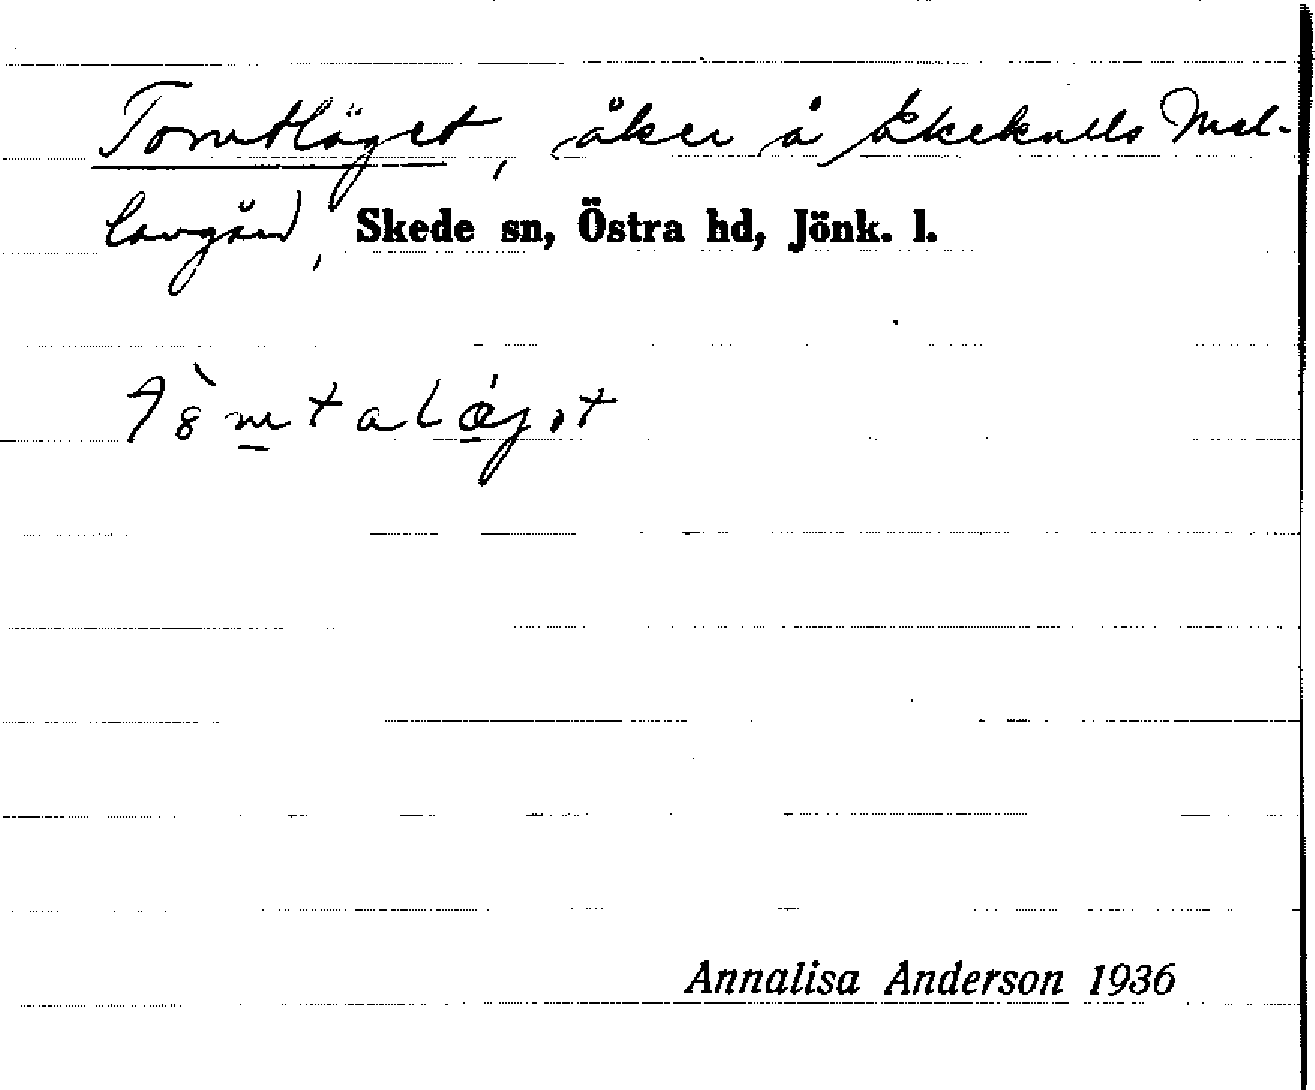 Tomtläget, åker å Åkekulls Mel-
langård, Skede sn, Östra hd, Jönk. l.
Annalisa Anderson 1936